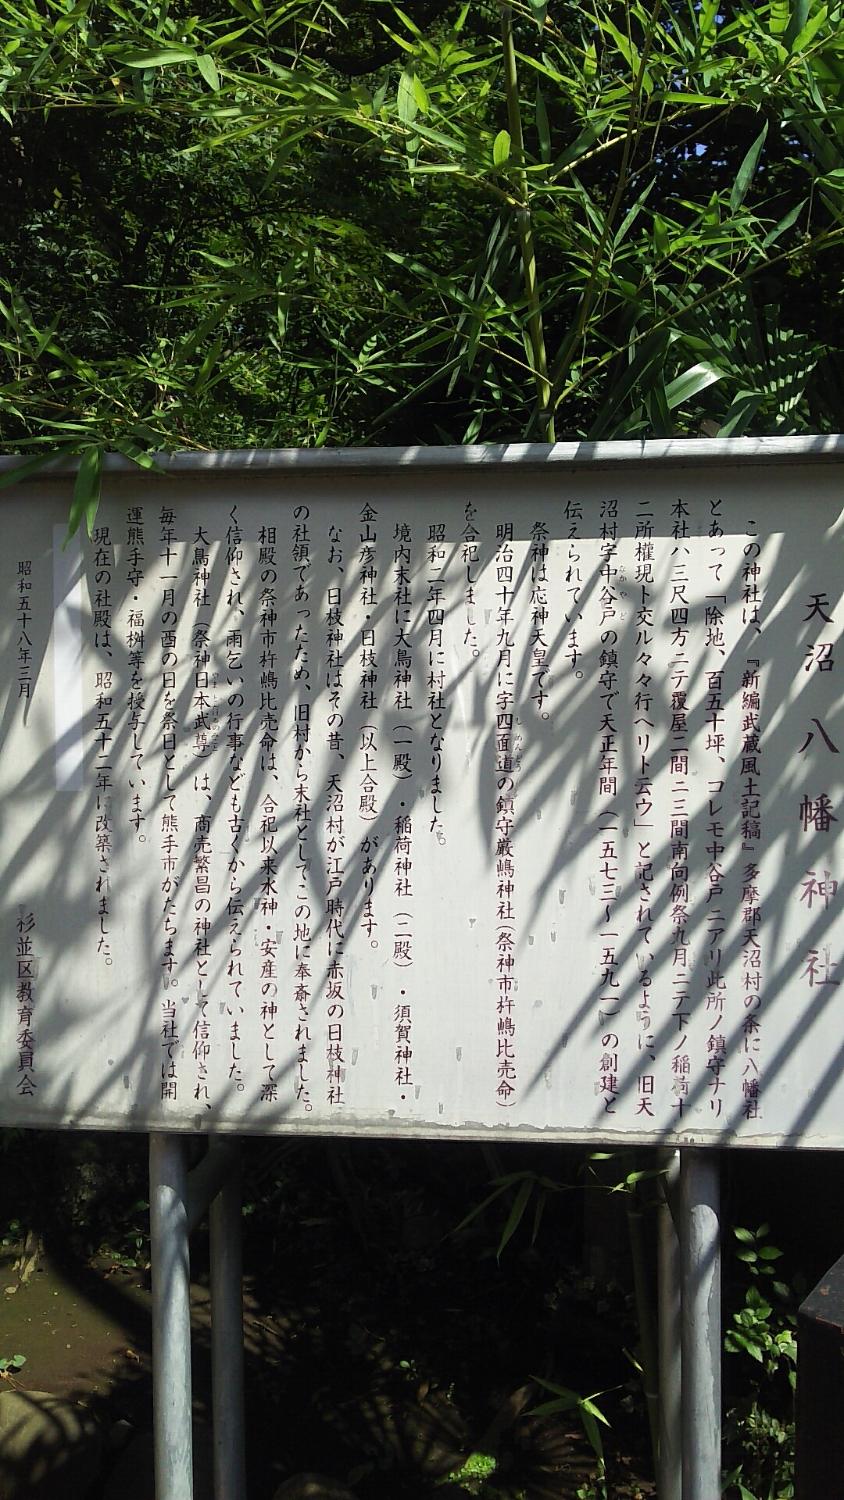 天沼八幡神社
この神社は、『新編武蔵風土記稿』多摩郡天沼村の条に八幡社
とあって「除地、百五十坪、コレモ中谷戸ニアリ此所ノ鎮守ナリ
本社ハ三尺四方ニテ覆屋二間ニ三間南向例祭九月ニテ下ノ稲荷十
二所權現ト交ル々々行ヘリト云ウ」と記されているように、旧天
沼村字中谷戸の鎮守で天正年間（一五七三～一五九一）の創建と
伝えられています。
祭神は応神天皇です。
明治四十年九月に字四面道の鎮守厳嶋神社(祭神市杵嶋比売命)
を合祀しました。
昭和二年四月に村社となりました。
境内末社に大鳥神社（一殿）・稲荷神社（二殿）・須賀神社・
金山彦神社・日枝神社（以上合殿）があります。
なお、日枝神社はその昔、天沼村が江戸時代に赤坂の日枝神社
の社領であったため、旧村から末社としてこの地に奉斎されました。
相殿の祭神市杵嶋比売命は、合祀以来水神・安産の神として深
く信仰され、雨乞いの行事なども古くから伝えられていました。
大鳥神社（祭神日本武尊）は、商売繁昌の神社として信仰され、
毎年十一月の酉の日を祭日として熊手市がたちます。当社では開
運熊手守・福桝等を授与しています。
現在の社殿は、昭和五十二年に改築されました。
昭和五十八年三月
杉並区教育委員会